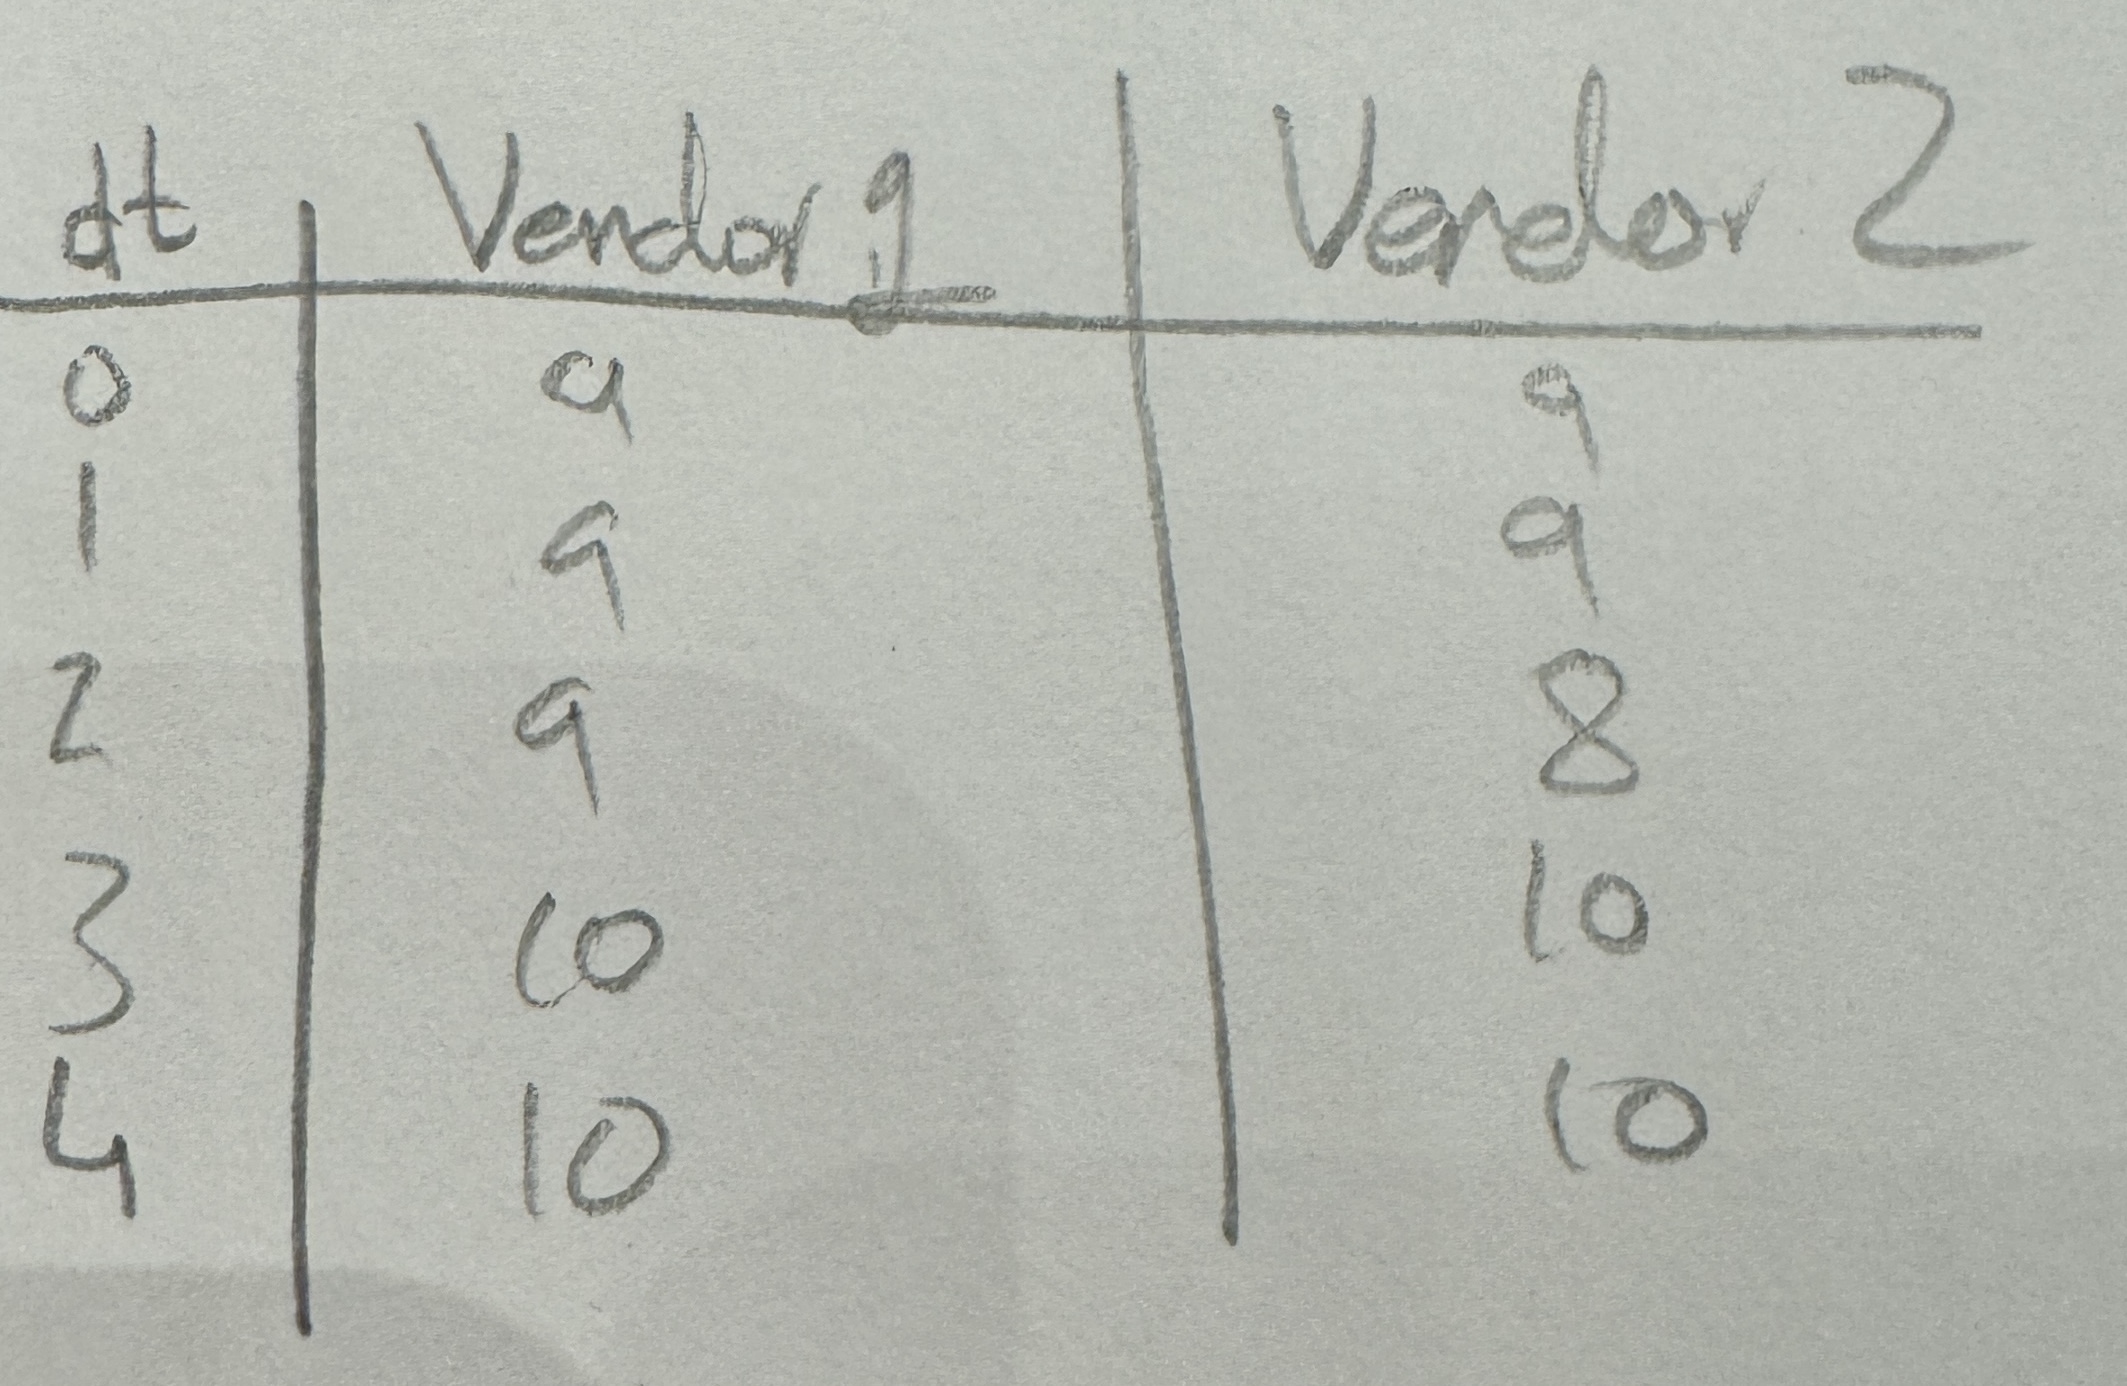 dt Vendor 1 Vendor 2
0 9 9
1 9 9
2 9 8
3 10 10
4 10 10